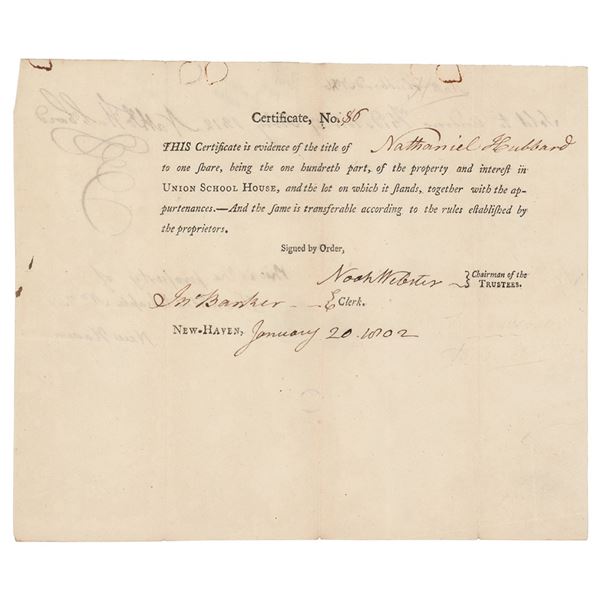 Certificate, No. 86
THIS Certificate is evidence of the title of Nathaniel Hubbard
to one ſhare, being the one hundreth part, of the property and intereſt in
UNION SCHOOL HOUSE, and the lot on which it ſtands, together with the ap-
purtenances.—And the ſame is transferable according to the rules eſtabliſhed by
the proprietors.
Signed by Order,
Noah Webster Chairman of the
TRUSTEES.
Jnº Barker Clerk.
NEW-HAVEN, January 20. 1802